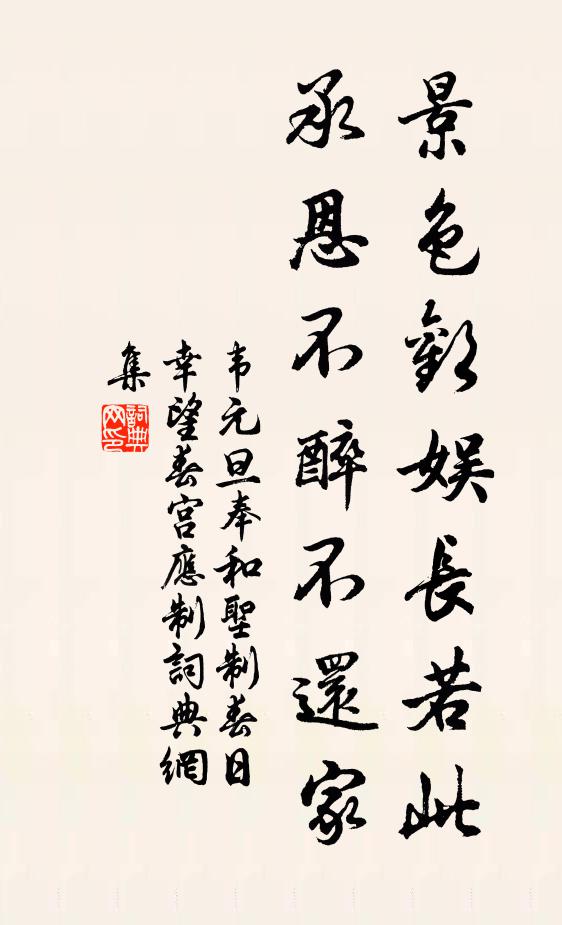 景色歡娛長若此
承恩不醉不還家
韦元旦奉和聖制春日
幸望春宮應制詞典網
集
詞典
网印